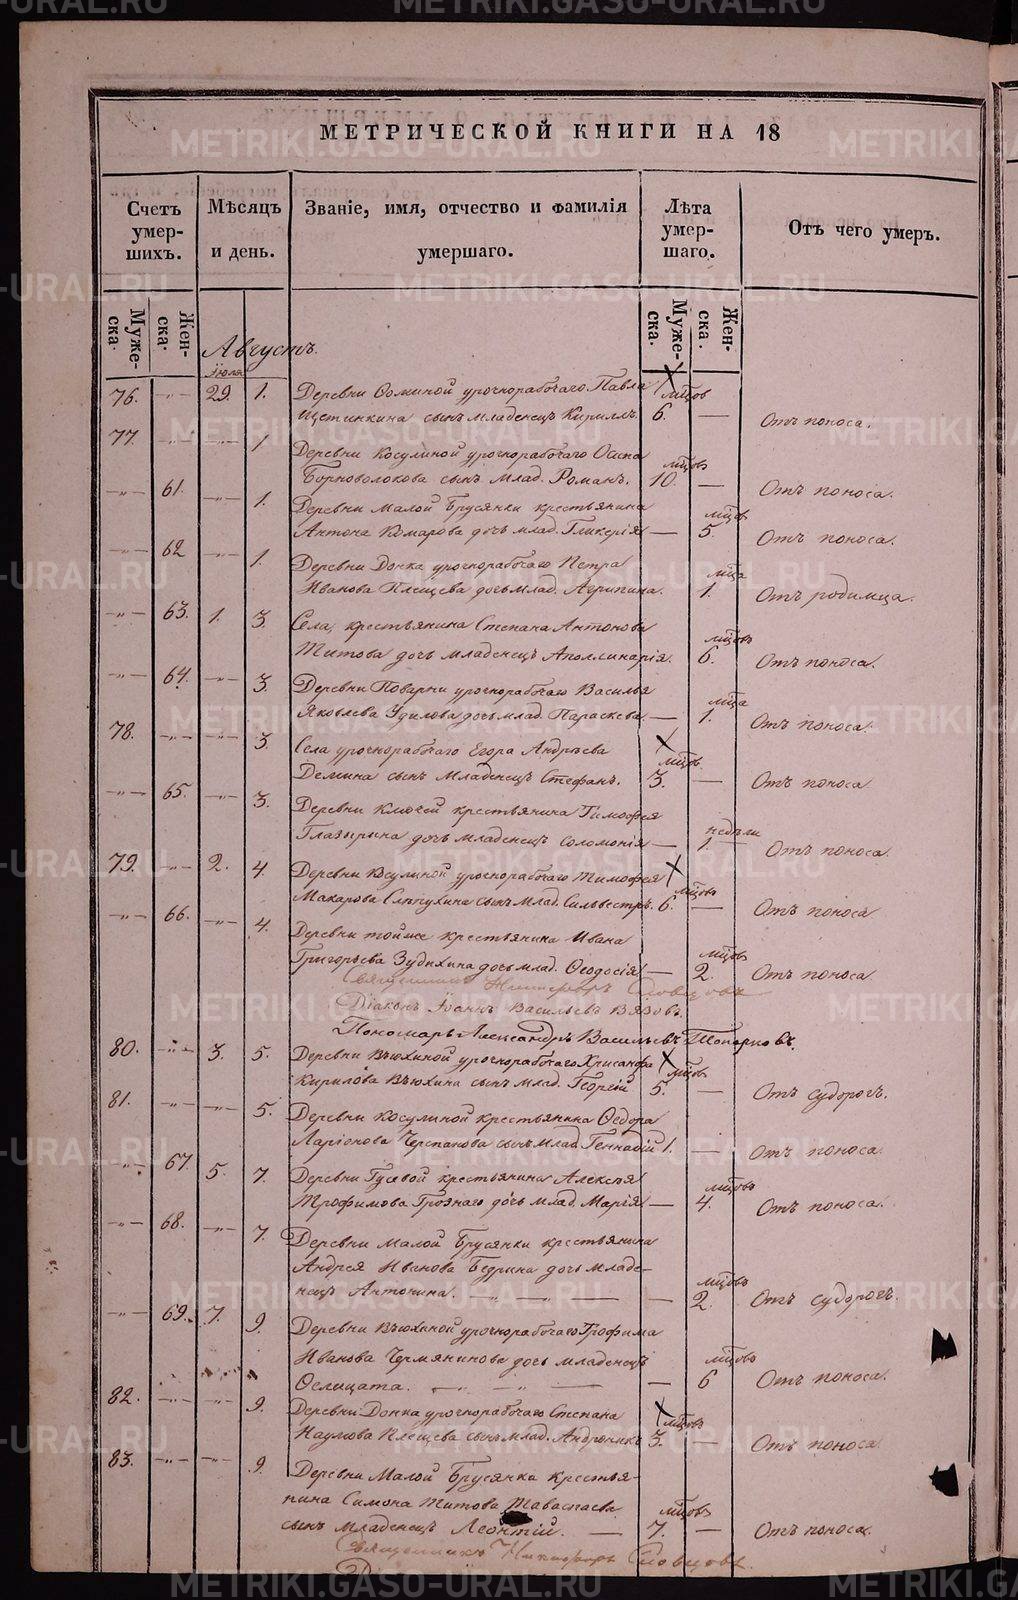 МЕТРИЧЕСКОЙ КНИГИ НА 18
Счетъ умер- шихъ.
Мѣсяцъ и день.
Званіе, имя, отчество и фамилія умершаго.
Лѣта умер- шаго.
Отъ чего умеръ.
Муже- ска.
Жен- ска.
Муже- ска.
Жен- ска.
Августъ.
Іюля
76. —„— 29. 1. Деревни Фоминой урочнорабочаго Павла
Щетинкина сынъ младенецъ Кириллъ. мцов 6. — Отъ поноса.
77. —„— —„— 1. Деревни Косулиной урочнорабочаго Осипа
Борноволокова сынъ млад. Романъ. мцовъ 10. — Отъ поноса.
—„— 61. —„— 1. Деревни Малой Брусянки крестьянина
Антона Комарова дочь млад. Гликерія — мцов 5. Отъ поноса.
—„— 62 —„— 1. Деревни Донка урочнорабочаго Петра
Иванова Плещева дочь млад. Агрипина. мца 1. Отъ родимца.
—„— 63. 1. 3. Села, крестьянина Степана Антонова
Титова дочь младенецъ Аполлинарія. мцовъ 6. Отъ поноса.
—„— 64. —„— 3. Деревни Поварни урочнорабочаго Василья
Яковлева Удилова дочь млад. Параскева — мца 1. Отъ поноса.
78. —„— —„— 3. Села урочнорабочаго Егора Андреева
Демина сынъ Младенецъ Стефанъ. мцов 3. — Отъ поноса
—„— 65. —„— 3. Деревни Ключей крестьянина Тимофея
Глазырина дочь младенецъ Соломонія — недѣли 1. Отъ поноса.
79. —„— 2. 4. Деревни Косулиной урочнорабочаго Тимофея
Макарова сынъ млад. Сильвестръ. мцовъ 6. — Отъ поноса
—„— 66. —„— 4. Деревни тойже крестьянина Ивана
Григорьева Зудихина дочь млад. Феодосія — мцовъ 2. Отъ поноса
Священникъ Никифоръ Словцовъ
Діаконъ Іоаннъ Васильевъ Вязовъ.
Пономарь Александръ Васильевъ Топорковъ.
80. —„— 3. 5. Деревни Вьюхиной урочнорабочаго Хрисанфа
Кирилова Вьюхина сынъ млад. Георгій мцов 5. — Отъ судорогъ.
81. —„— —„— 5. Деревни Косулиной крестьянина Федора
Ларіонова Черепанова сынъ млад. Геннадій 1. — Отъ поноса.
—„— 67. 5. 7. Деревни Гусевой крестьянина Алексѣя
Трофимова Грознаго дочь млад. Марія — мцовъ 4. Отъ поноса.
—„— 68. —„— 7. Деревни Малой Брусянки крестьянина
Андрея Иванова Бедрина дочь младе-
нецъ Антонина. — мцовъ 2. Отъ судорогъ.
—„— 69. 7. 9. Деревни Вьюхиной урочнорабочаго Трофима
Иванова Чермянинова дочь младенецъ
Фелицата. — мцовъ 6 Отъ поноса.
82. —„— —„— 9. Деревни Донка урочнорабочаго Степана
Наумова Плещева сынъ млад. Андроникъ мцовъ 3. — Отъ поноса.
83. —„— —„— 9. Деревни Малой Брусянки крестья-
нина Симона Титова
сынъ младенецъ Леонтій. — мцовъ 7. — Отъ поноса.
Священникъ Никифоръ Словцовъ.
METRIKI.GASO-URAL.RU